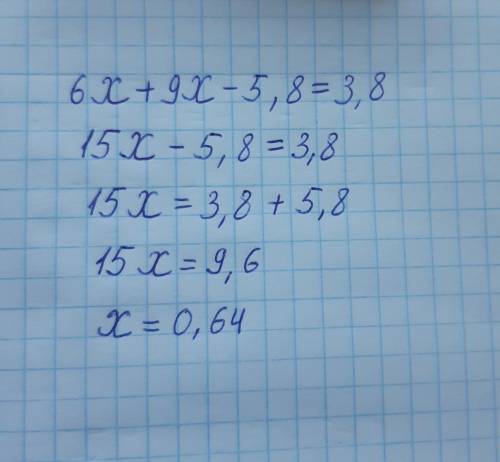 6x + 9x - 5,8 = 3,8
15x - 5,8 = 3,8
15x = 3,8 + 5,8
15x = 9,6
x = 0,64